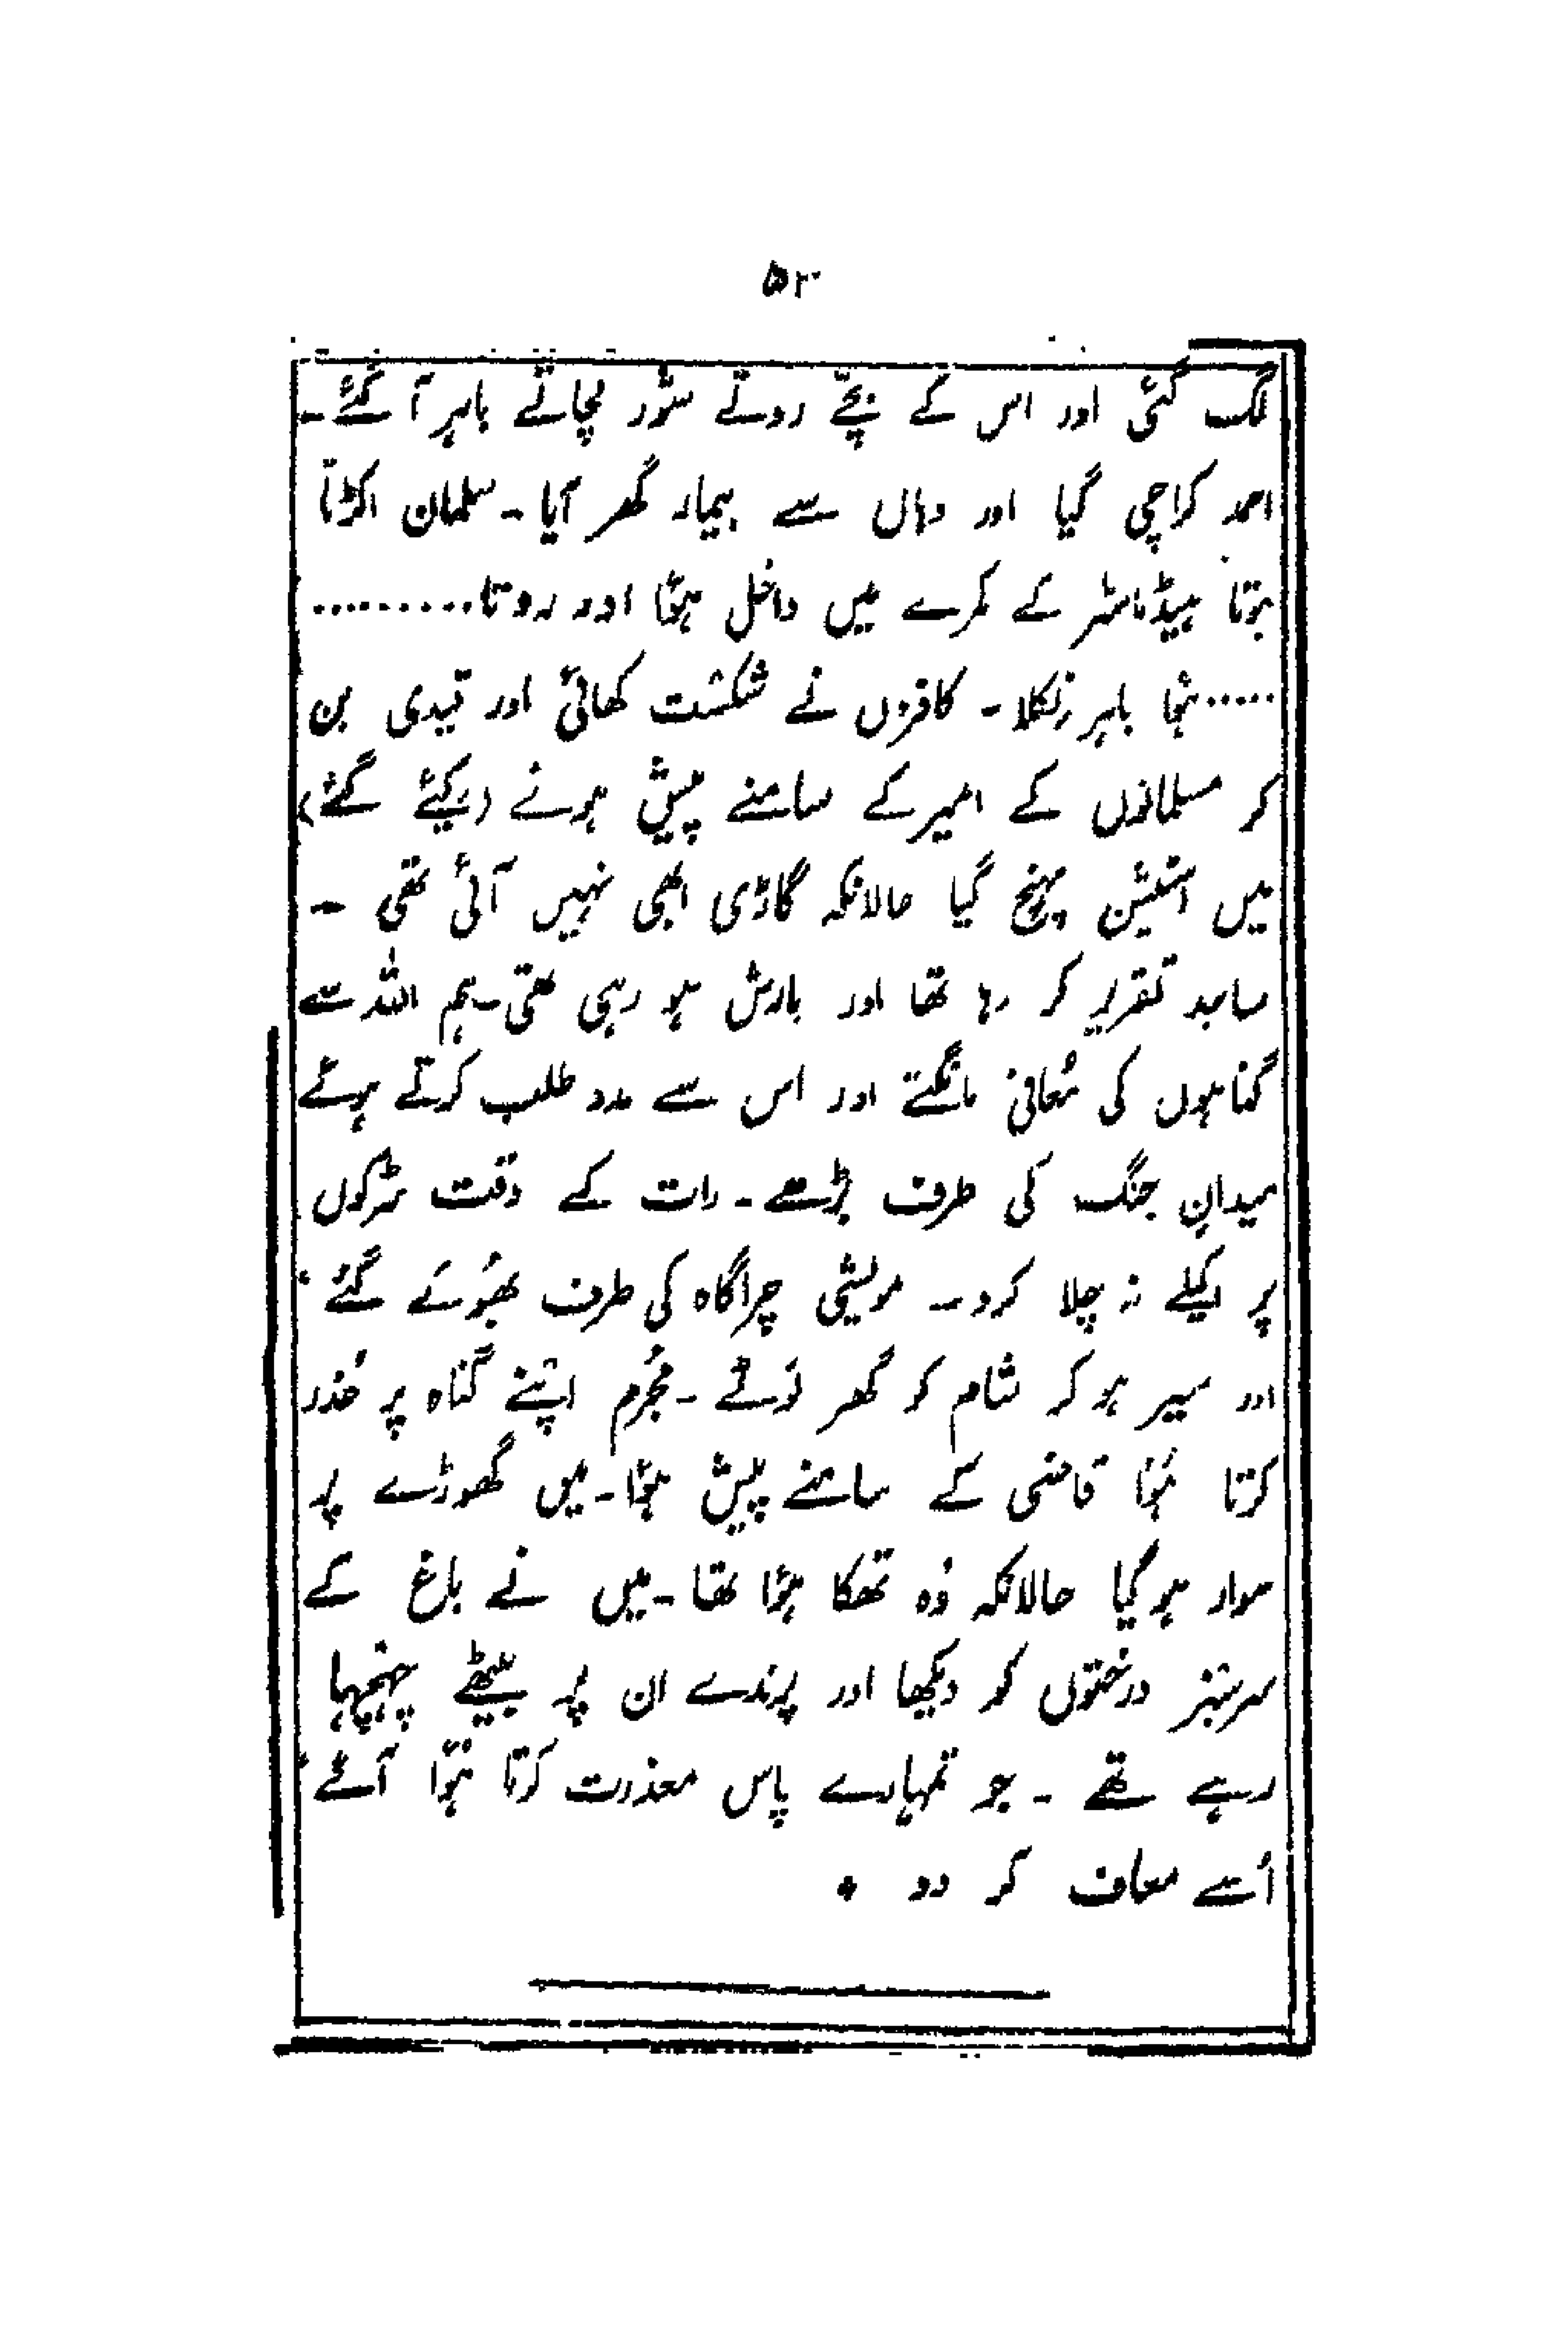 ۵۲
لگ گئی اور اس کے بچّے روتے شور مچاتے باہر آ گئے۔
احمد کراچی گیا اور وہاں سے بیمار گھر آیا۔ سلمان اکڑتا
ہوتا ہیڈماسٹر کے کمرے میں داخل ہؤا اور روتا.........
.....ہُا باہر نکلا۔ کافروں نے شکست کھائی اور قیدی بن
کر مسلمانوں کے امیر کے سامنے پیش ہوئے (کیئے گئے)
میں اسٹیشن پہنچ گیا حالانکہ گاڑی ابھی نہیں آئی تھی ۔
ساجد تقریر کر رہا تھا اور بارش ہو رہی تھی۔ ہم اللہ سے
گناہوں کی مُعافی مانگتے اور اس سے مدد طلب کرتے ہوئے
میدانِ جنگ کی طرف بڑھے۔ رات کے وقت سڑکوں
پر اکیلے نہ چلا کرو۔ مویشی چراگاہ کی طرف بھُوکے گئے
اور سیر ہو کر شام کو گھر لَوٹے ۔ مُجرُم اپنے گناہ پر عُذر
کرتا ہُؤا قاضی کے سامنے پیش ہؤا۔ میں گھوڑے پر
سوار ہو گیا حالانکہ وُہ تھکا ہؤا تھا۔ میں نے باغ کے
سرسبز درختوں کو دیکھا اور پرندے ان پر بیٹھے چہچہا
رہے تھے ۔ جو تمہارے پاس معذرت کرتا ہُوّا آئے
اُسے معاف کر دو ٭